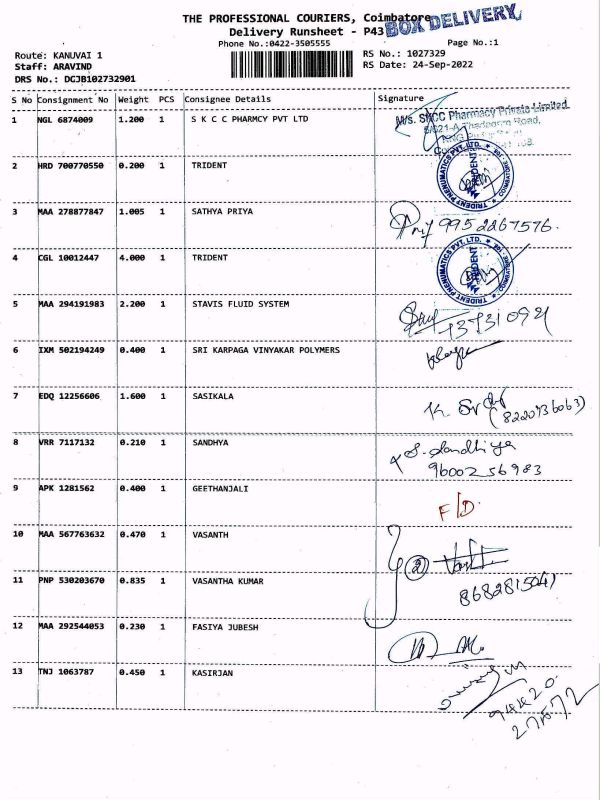 THE PROFESSIONAL COURIERS, Coimbatore
BOX DELIVERY
Delivery Runsheet - P43
Phone No.:0422-3505555
Page No.:1
Route: KANUVAI 1
RS No.: 1027329
Staff: ARAVIND
RS Date: 24-Sep-2022
DRS No.: DCJB102732901
S No Consignment No Weight PCS Consignee Details Signature
1 NGL 6874009 1.200 1 S K C C PHARMCY PVT LTD
M/s. SKCC Pharmacy Private Limited
2 HRD 700770550 0.200 1 TRIDENT
TRIDENT PNEUMATICS PVT. LTD.
3 MAA 278877847 1.005 1 SATHYA PRIYA
9952267576.
4 CGL 10012447 4.000 1 TRIDENT
TRIDENT PNEUMATICS PVT. LTD.
5 MAA 294191983 2.200 1 STAVIS FLUID SYSTEM
6 IXM 502194249 0.400 1 SRI KARPAGA VINYAKAR POLYMERS
7 EDQ 12256606 1.600 1 SASIKALA
(8220736063)
8 VRR 7117132 0.210 1 SANDHYA
S. Sandhiya
9600256983
9 APK 1281562 0.400 1 GEETHANJALI
F/D.
10 MAA 567763632 0.470 1 VASANTH
2
11 PNP 530203670 0.835 1 VASANTHA KUMAR
8682815041
12 MAA 292544053 0.230 1 FASIYA JUBESH
13 TNJ 1063787 0.450 1 KASIRJAN
94420
27572